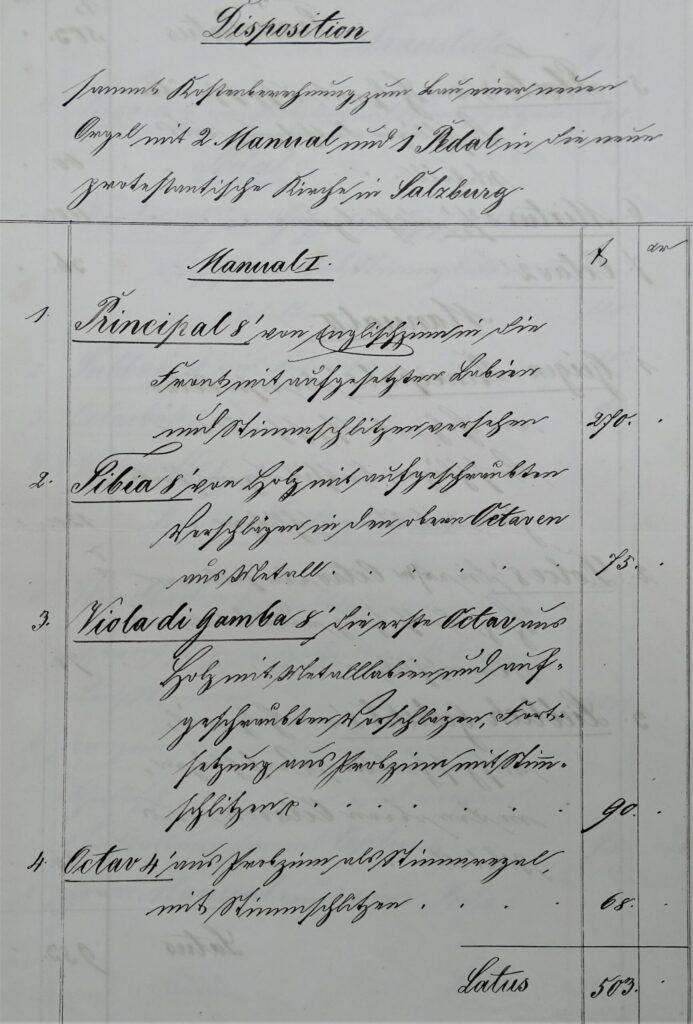 Disposition
sammt Kostenberechnung zum Bau einer neuen
Orgel mit 2 Manual und 1 Pedal in die neue
protestantische Kirche in Salzburg
Manual I. f. xr
1. Principal 8' von Englischzinn in die
Front mit aufgesetzten Labien
und Stimmschlitzen versehen 270. .
2. Tibia 8' von Holz mit aufgeschraubten
Vorschlägen in den obern Octaven
aus Metall . . . . . 75. .
3. Viola di Gamba 8' die erste Octav aus
Holz mit Metalllabien und auf-
geschraubten Vorschlägen, Fort-
setzung aus Probzinn mit Stimm-
schlitzen . . . . . 90. .
4. Octav 4' aus Probzinn als
mit Stimmschlitzen . . . . 68. .
Latus 503. .